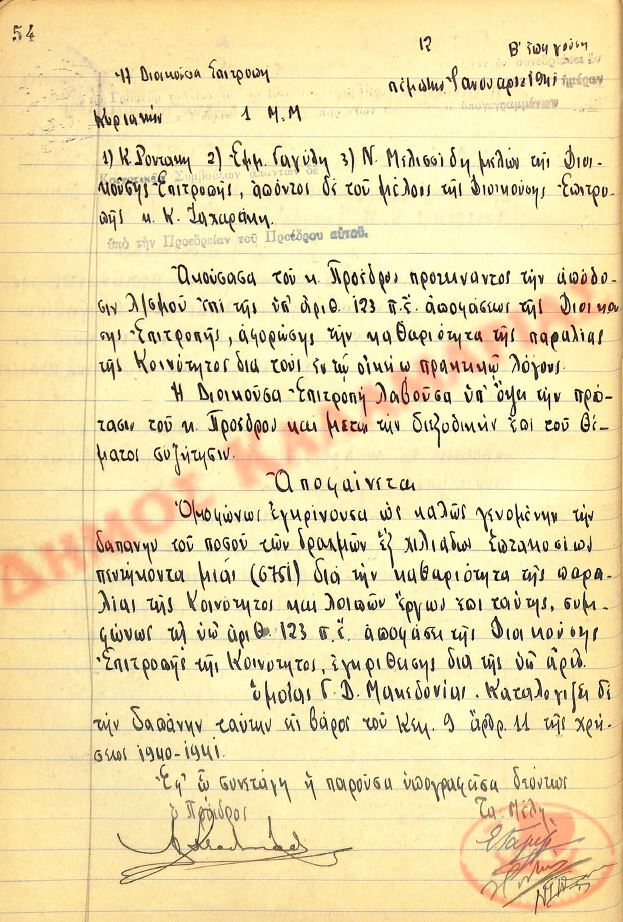 54
12 Β' συνεχούση
Ἡ Διοικοῦσα Ἐπιτροπή πέμπτης Ἰανουαρίου 1941
Κυριακήν 1 Μ.Μ
1) Κ. Ρουτάκη 2) Ἐμμ. 3) Ν. Μελισσίδη μελῶν τῆς Διοι-
κούσης Ἐπιτροπῆς, ἀπόντος δὲ τοῦ μέλους τῆς Διοικούσης Ἐπιτρο-
πῆς κ. Κ. Ζαχαράκη.
ὑπὸ τὴν Προεδρείαν τοῦ Προέδρου αὐτοῦ.
Ἀκούσασα τοῦ κ. Προέδρος προτείναντος τὴν ἀπόδο-
σιν λ)σμοῦ ἐπὶ τῆς ὑπ' ἀριθ. 123 π.ἔ. ἀποφάσεως τῆς Διοικου
σης Ἐπιτροπῆς, ἀφορώσης τὴν καθαριότητα τῆς παραλίας
τῆς Κοινότητος δια τοὺς ἐν τῷ οἰκείω πρακτικῷ λόγους.
Ἡ Διοικοῦσα Ἐπιτροπή λαβοῦσα ὑπ' ὄψει τὴν πρό-
τασιν τοῦ κ. Προέδρος και μετα τὴν διεξοδικήν ἐπι τοῦ θέ-
ματος συζήτησιν.
Ἀποφαίνεται
Ὁμοφώνως ἐγκρίνουσα ὡς καλῶς γενομένην τὴν
δαπάνην τοῦ ποσοῦ τῶν δραχμῶν ἓξ χιλιάδων ἑπτακοσίων
πεντήκοντα μιάς (6751) διά τὴν καθαριότητα τῆς παρα-
λίας τῆς Κοινότητος και λοιπῶν ἔργων ἐπι ταύτης, συμ-
φώνως τῇ ὑπ' ἀριθ. 123 π.ἔ. ἀποφάσει τῆς Διοικούσης
Ἐπιτροπῆς τῆς Κοινότητος, ἐγκριθείσης δια τῆς ὑπ' ἀριθ.
ὁμοίας Γ. Δ. Μακεδονίας. Καταλογίζει δὲ
τὴν δαπάνην ταύτην εἰς βάρος τοῦ Κεφ. 9 ἄρθρ. 11 τῆς χρή-
σεως 1940-1941.
Ἐφ' ᾧ συνετάγη ἡ παροῦσα ὑπογραφεῖσα δεόντως
ὁ Πρόεδρος Τα Μέλη